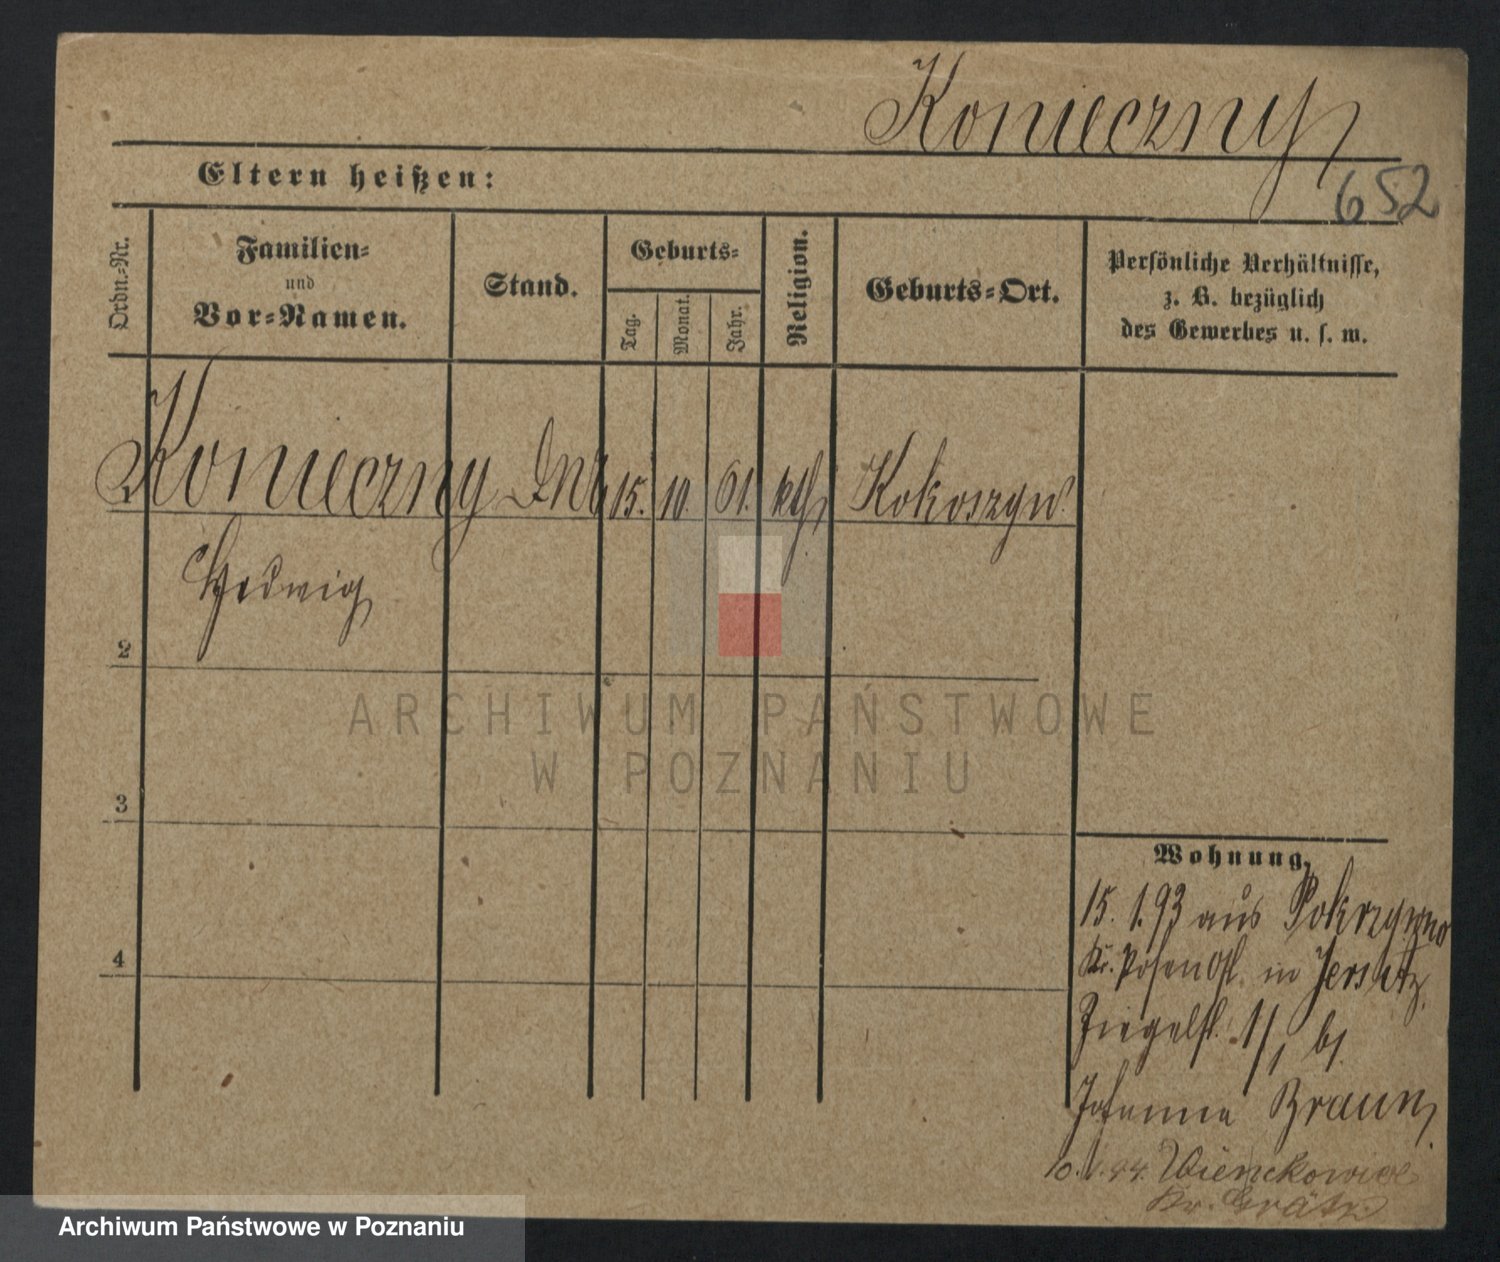 Konieczny
Eltern heißen:
652
Ordn.-Nr.
Familien-
und
Vor-Namen.
Stand.
Geburts-
Tag.
Monat.
Jahr.
Religion.
Geburts-Ort.
Persönliche Verhältnisse,
z. B. bezüglich
des Gewerbes u. s. w.
Konieczny 15. 10. 61. kth
Hedwig
2
3
4
Wohnung,
15. 1. 93 aus Pokrzywno
Kr. Posen Ost. in Jersitz,
Ziegelst. 1/1 bei
Johanna Braun,
Kr. Grätz
ARCHIWUM PAŃSTWOWE
W POZNANIU
Archiwum Państwowe w Poznaniu